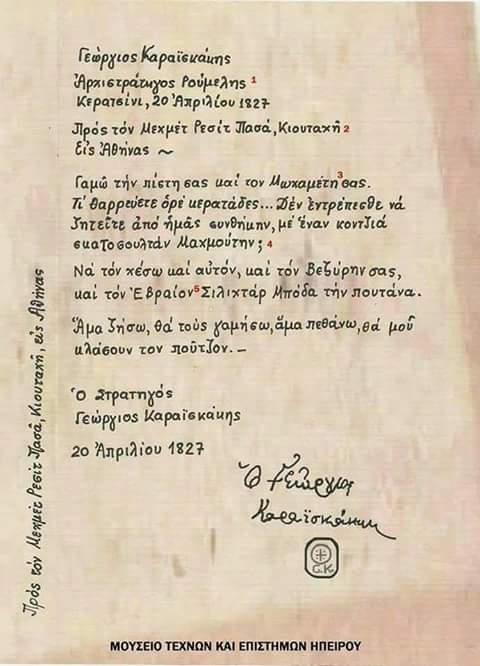 Γεώργιος Καραϊσκάκης
Ἀρχιστράτηγος Ρούμελης 1
Κερατσίνι, 20 Ἀπριλίου 1827
Πρός τόν Μεχμέτ Ρεσίτ Πασά, Κιουταχῆ 2
Εἰς Ἀθήνας ~
Γαμῶ τήν πίστη σας καί τον Μωχαμέτη 3 σας.
Τί θαρρεύετε ὀρέ κερατάδες... Δέν ἐντρέπεσθε νά
ζητεῖτε ἀπό ἡμᾶς συνθήκην, μέ ἕναν κοντζιά
σκατοσουλτάν Μαχμούτην; 4
Νά τόν χέσω καί αὐτόν, καί τόν Βεζύρην σας,
καί τόν Ἑβραίον 5 Σιλιχτάρ Μπόδα τήν πουτάνα.
Ἅμα ζήσω, θά τούς γαμήσω, ἅμα πεθάνω, θά μοῦ
κλάσουν τον ποῦτζον. —
Ὁ Στρατηγός
Γεώργιος Καραϊσκάκης
20 Ἀπριλίου 1827
Ὁ Γεώργιος
Καραϊσκάκης
G.K.
Πρός τόν Μεχμέτ Ρεσίτ Πασά, Κιουταχῆ, εἰς Ἀθήνας
ΜΟΥΣΕΙΟ ΤΕΧΝΩΝ ΚΑΙ ΕΠΙΣΤΗΜΩΝ ΗΠΕΙΡΟΥ